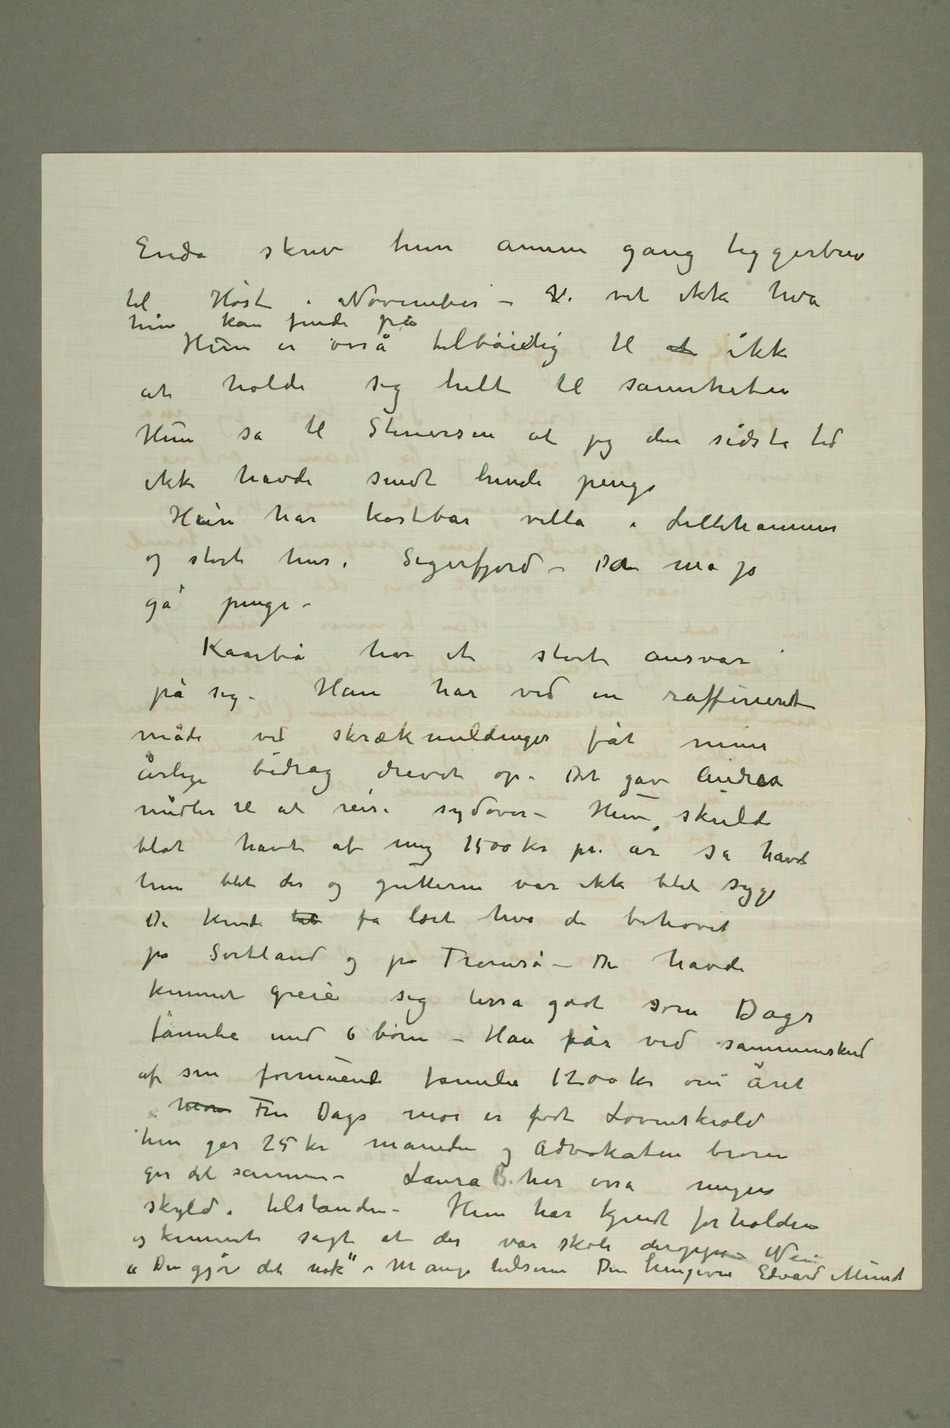 Enda skrev hun anden gang tiggerbrev
til Høst i November – Vi vet ikke hva
hun kan finde på
Hun er osså tilbøielig til at ikke
at holde sig helt til sannheten
Hun sa til Stenersen at jeg den sidste tid
ikke havde sendt hende penge
Hun har kostbar villa i Lillehammer
og stort hus i Sigerfjord – Det må jo
gå penge –
Kaarbø har et stort ansvar
på sig – Han har ved en raffineret
måde ved skrækmeldinger fåt mine
årlige bidrag drevet op – Det gav Andrea
midler til at reise sydover – Hun skulde
blot havt af mig 1500 kr pr. år så havde
hun blet der og guttene var ikke blit syge
De kunde let få lært hva de behøvet
på Sortland og på Tromsø – De havde
kunnet greie sig lisså godt som Dags
familie med 6 børn – Han får ved sammenskud
af sin formuende familie 1200 kr om året
mor Fru Dags mor er født Løvenskiold
hun gir 25 kr måneden og Advokaten broren
gir det samme – Laura B. har osså megen
skyld i tilstanden – Hun har kjendt forholdene
og kunnet sagt at der var skole deroppe – Nei
« Du gjør det nok" – Mange hilsener Din hengivne Edvard Munch